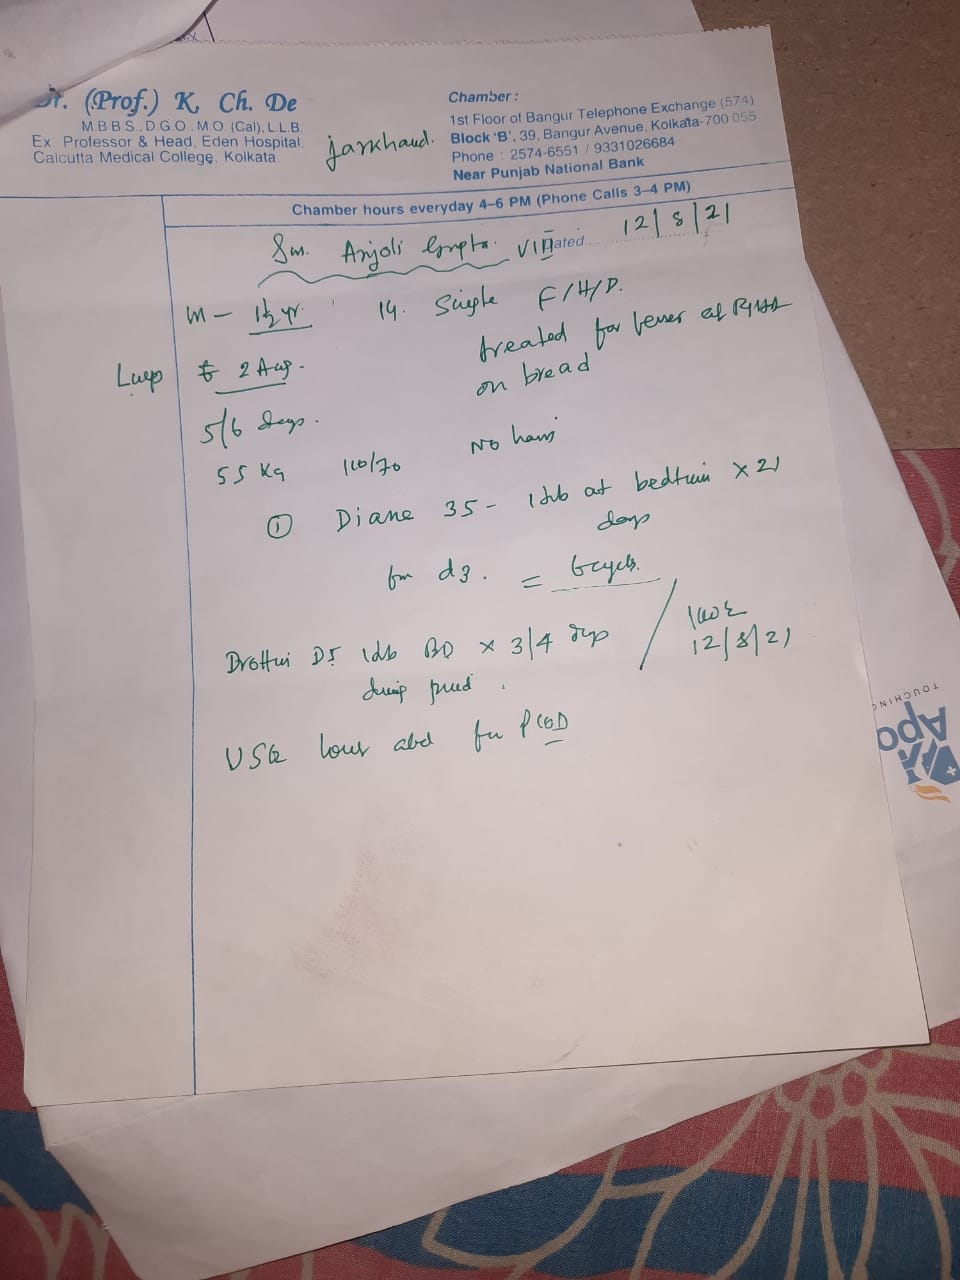 Dr. (Prof.) K. Ch. De
M.B.B.S., D.G.O., M.O. (Cal), L.L.B.
Ex. Professor & Head, Eden Hospital,
Calcutta Medical College, Kolkata
jarkhand.
Chamber :
1st Floor of Bangur Telephone Exchange (574)
Block 'B', 39, Bangur Avenue, Kolkata-700 055
Phone : 2574-6551 / 9331026684
Near Punjab National Bank
Chamber hours everyday 4–6 PM (Phone Calls 3–4 PM)
Sm. Anjoli Gupta. Dated 12/8/21
M – 1½ yr. 19. Single F/H/D.
treated for
on bread
2 Aug.
5/6 days.
55 Kg 110/70 No
① Diane 35 – 1 tab at bedtime x 21
days
fm d3. = 6 cycls.
D5 1 tab BD x 3/4 dys
12/8/21
during
USG lower abd for PCOD
TOUCHING
Apo